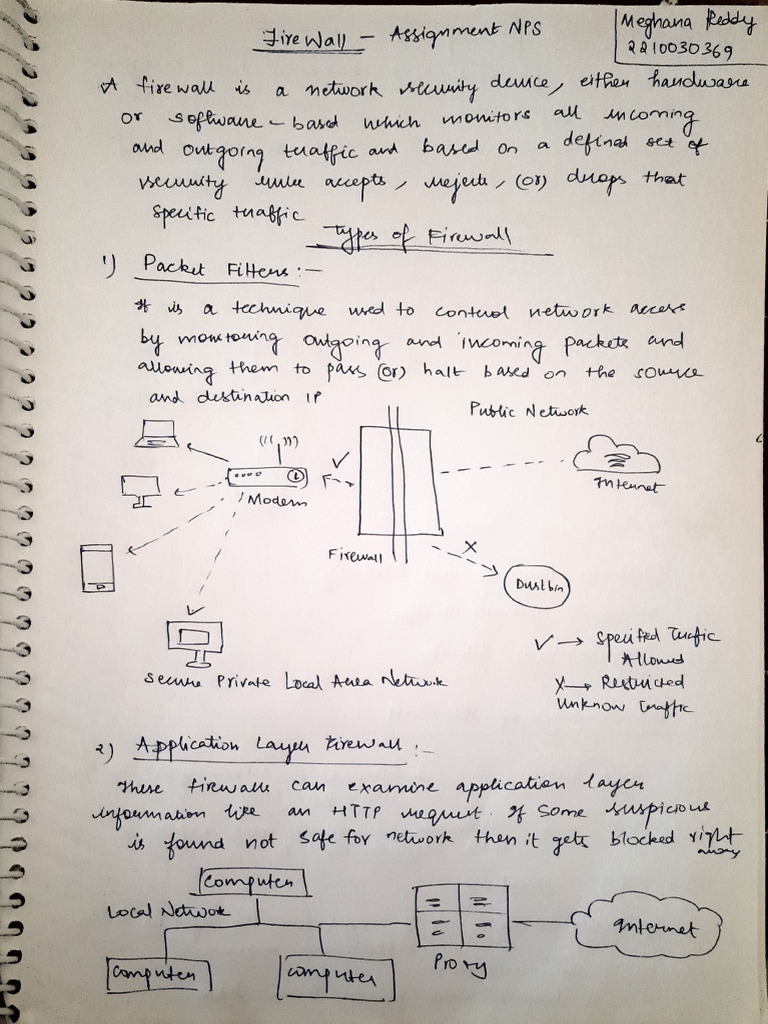 FireWall - Assignment NPS
Meghana Reddy
2210030369
A firewall is a network security device, either hardware
or software-based which monitors all incoming
and outgoing traffic and based on a defined set of
security rule accepts, rejects, (or) drops that
specific traffic
Types of Firewall
1) Packet Filters :-
It is a technique used to control network access
by monitoring outgoing and incoming packets and
allowing them to pass (or) halt based on the source
and destination IP
Public Network
Modem
Internet
Firewall
X
Dustbin
✓ → Specified Traffic
Allowed
X → Restricted
Unknow Traffic
Secure Private Local Area Network
2) Application Layer Firewall :-
These firewalls can examine application layer
information like an HTTP request. If Some suspicious
is found not safe for network then it gets blocked right
away
Computer
Local Network
Internet
Proxy
Computer
Computer